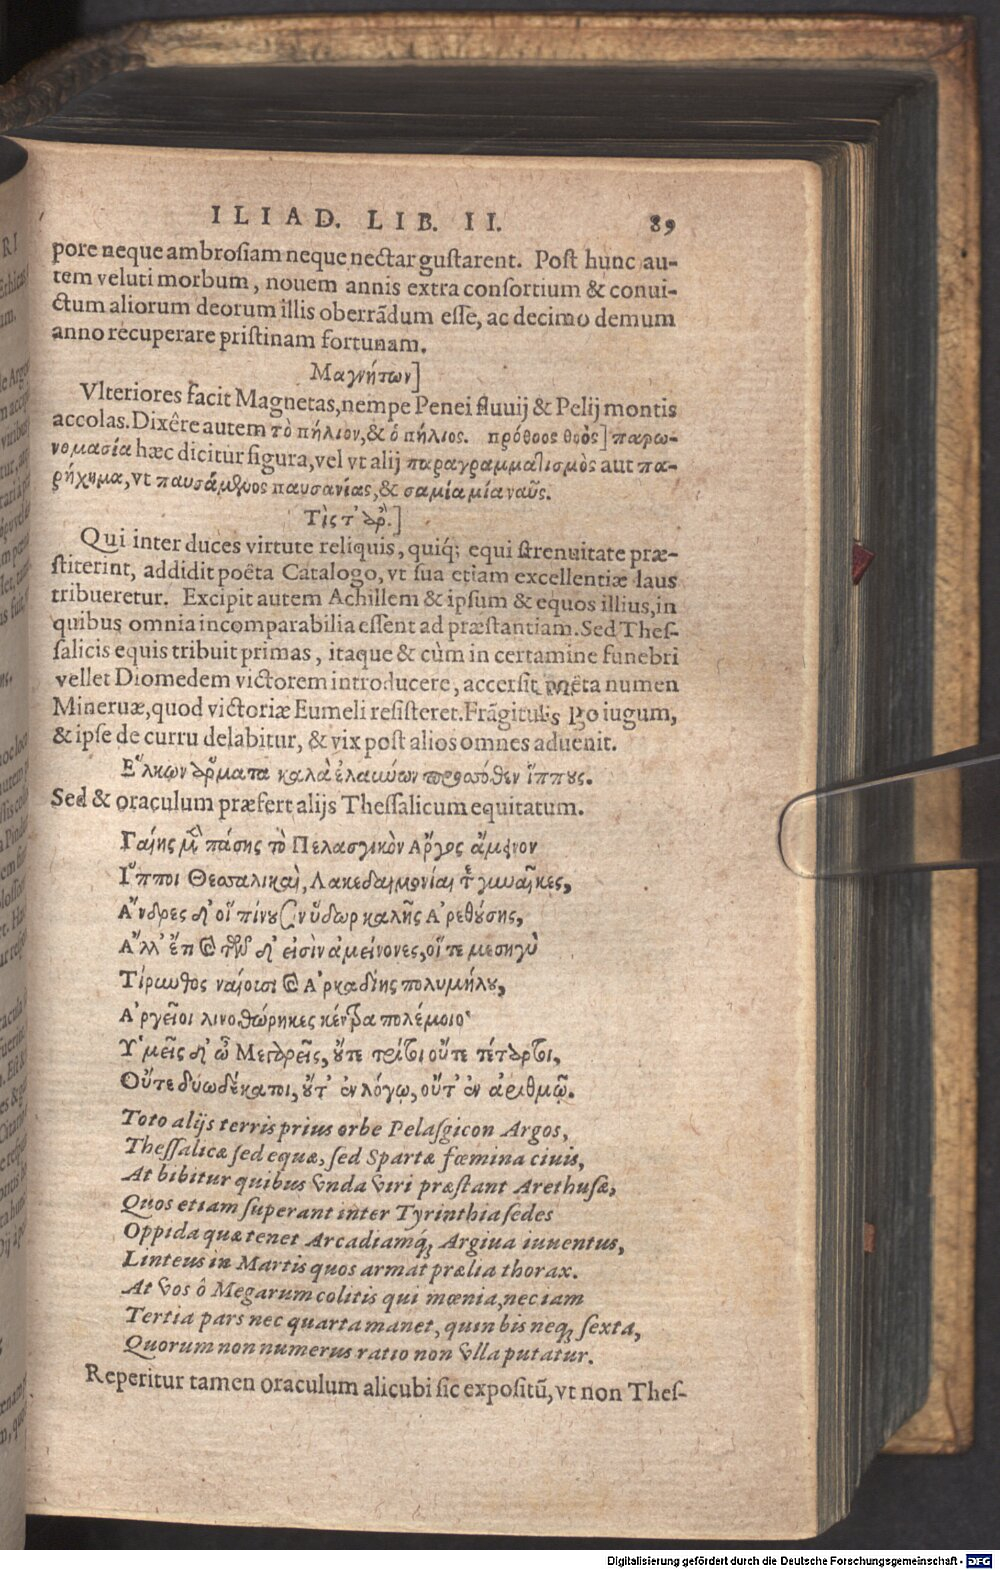 ILIAD. LIB. II. 89
pore neque ambrosiam neque nectar gustarent. Post hunc au-
tem veluti morbum, nouem annis extra consortium & conui-
ctum aliorum deorum illis oberrãdum esse, ac decimo demum
anno recuperare pristinam fortunam.
Μαγνήτων]
Vlteriores facit Magnetas, nempe Penei fluuij & Pelij montis
accolas. Dixêre autem τὸ πήλιον, & ὁ πήλιος. πρόθοος θοὸς] παρω-
νομασία hæc dicitur figura, vel vt alij παραγραμματισμὸς aut πα-
ρήχημα, vt παυσάμενος παυσανίας, & σαμία μία ναῦς.
Τίς τ' ἄρ.]
Qui inter duces virtute reliquis, quiq; equi strenuitate præ-
stiterint, addidit poêta Catalogo, vt sua etiam excellentiæ laus
tribueretur. Excipit autem Achillem & ipsum & equos illius, in
quibus omnia incomparabilia essent ad præstantiam. Sed Thes-
salicis equis tribuit primas, itaque & cùm in certamine funebri
vellet Diomedem victorem introducere, accersit poêta numen
Mineruæ, quod victoriæ Eumeli resisteret. Frãgitur iugum,
& ipse de curru delabitur, & vix post alios omnes aduenit.
Ἕλκων ἅρματα καλὰ ἐλαύνων πρόσοθεν ἵππους.
Sed & oraculum præfert alijs Thessalicum equitatum.
Γαίης μὲν πάσης τὸ Πελασγικὸν Ἄργος ἄμεινον
Ἵπποι Θεσσαλικαὶ, Λακεδαιμονίαι τε γυναῖκες,
Ἄνδρες δ' οἳ πίνουσιν ὕδωρ καλῆς Ἀρεθούσης,
Ἀλλ' ἔτι καὶ τῶν δ' εἰσὶν ἀμείνονες, οἵ τε μεσηγὺ
Τίρυνθος ναίουσι καὶ Ἀρκαδίης πολυμήλου,
Ἀργεῖοι λινοθώρηκες κέντρα πολέμοιο·
Ὑμεῖς δ' ὦ Μεγαρεῖς, οὔτε τρίτοι οὔτε τέταρτοι,
Οὔτε δυωδέκατοι, οὔτ' ἐν λόγῳ, οὔτ' ἐν ἀριθμῷ.
Toto alijs terris prius orbe Pelasgicon Argos,
Thessalicæ sed equæ, sed Spartæ fœmina ciuis,
At bibitur quibus vnda viri præstant Arethusæ,
Quos etiam superant inter Tyrinthia sedes
Oppida quæ tenet Arcadiamq; Argiua iuuentus,
Linteus in Martis quos armat prælia thorax.
At vos ô Megarum colitis qui mœnia, nec iam
Tertia pars nec quarta manet, quin bis neq; sexta,
Quorum non numerus ratio non vlla putatur.
Reperitur tamen oraculum alicubi sic expositũ, vt non Thes-
Digitalisierung gefördert durch die Deutsche Forschungsgemeinschaft - DFG